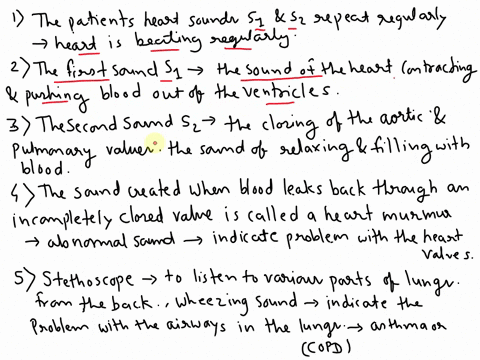 1) The patients heart sounds S1 & S2 repeat regularly
→ heart is beating regularly.
2) The first sound S1 → the sound of the heart contracting
& pushing blood out of the ventricles.
3) The second sound S2 → the closing of the aortic &
pulmonary valves. the sound of relaxing & filling with
blood.
4) The sound created when blood leaks back through an
incompletely closed valve is called a heart murmur
→ abnormal sound → indicate problem with the heart
valves.
5) Stethoscope → to listen to various parts of lungs.
from the back., wheezing sound → indicate the
Problem with the airways in the lungs. → asthma or
(COPD)